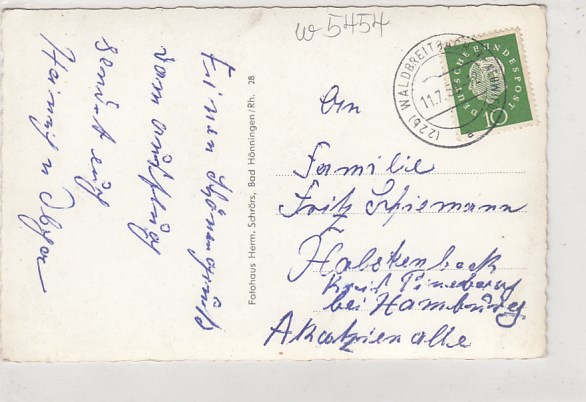 W 5454
Einen schönen Gruß
vom Ausflug
sendet euch
(22b) WALDBREITBACH
11.7.5
DEUTSCHE BUNDESPOST
10
Fotohaus Herm. Schrörs, Bad Hönningen/Rh. 28
An
Familie
Fritz Schiemann
Halstenbeck
Kreis Pinneberg
bei Hamburg
Akazienallee